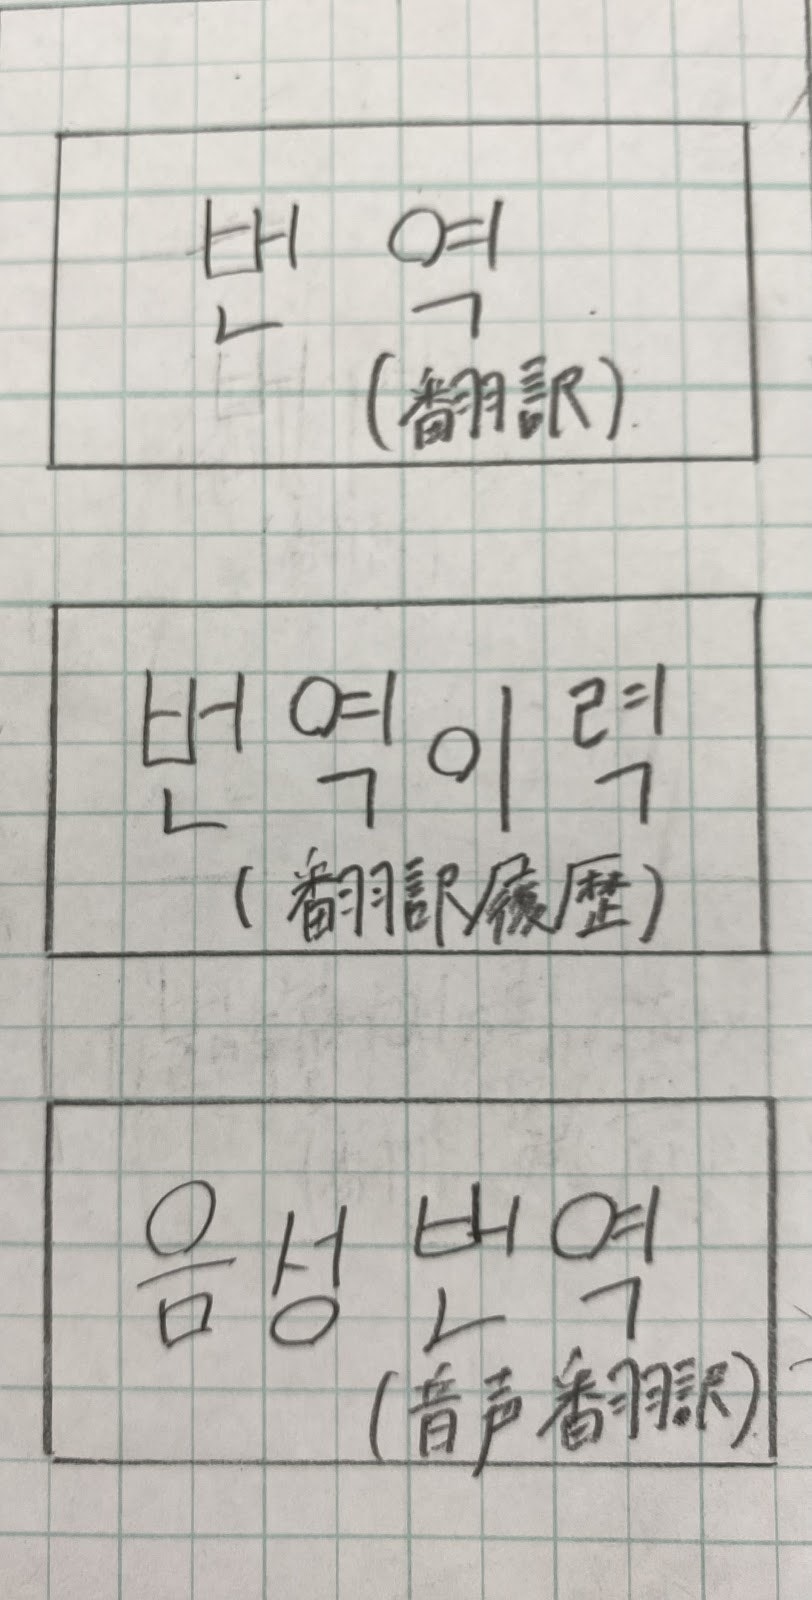 번역
(翻訳)
번역이력
(翻訳履歴)
음성번역
(音声翻訳)